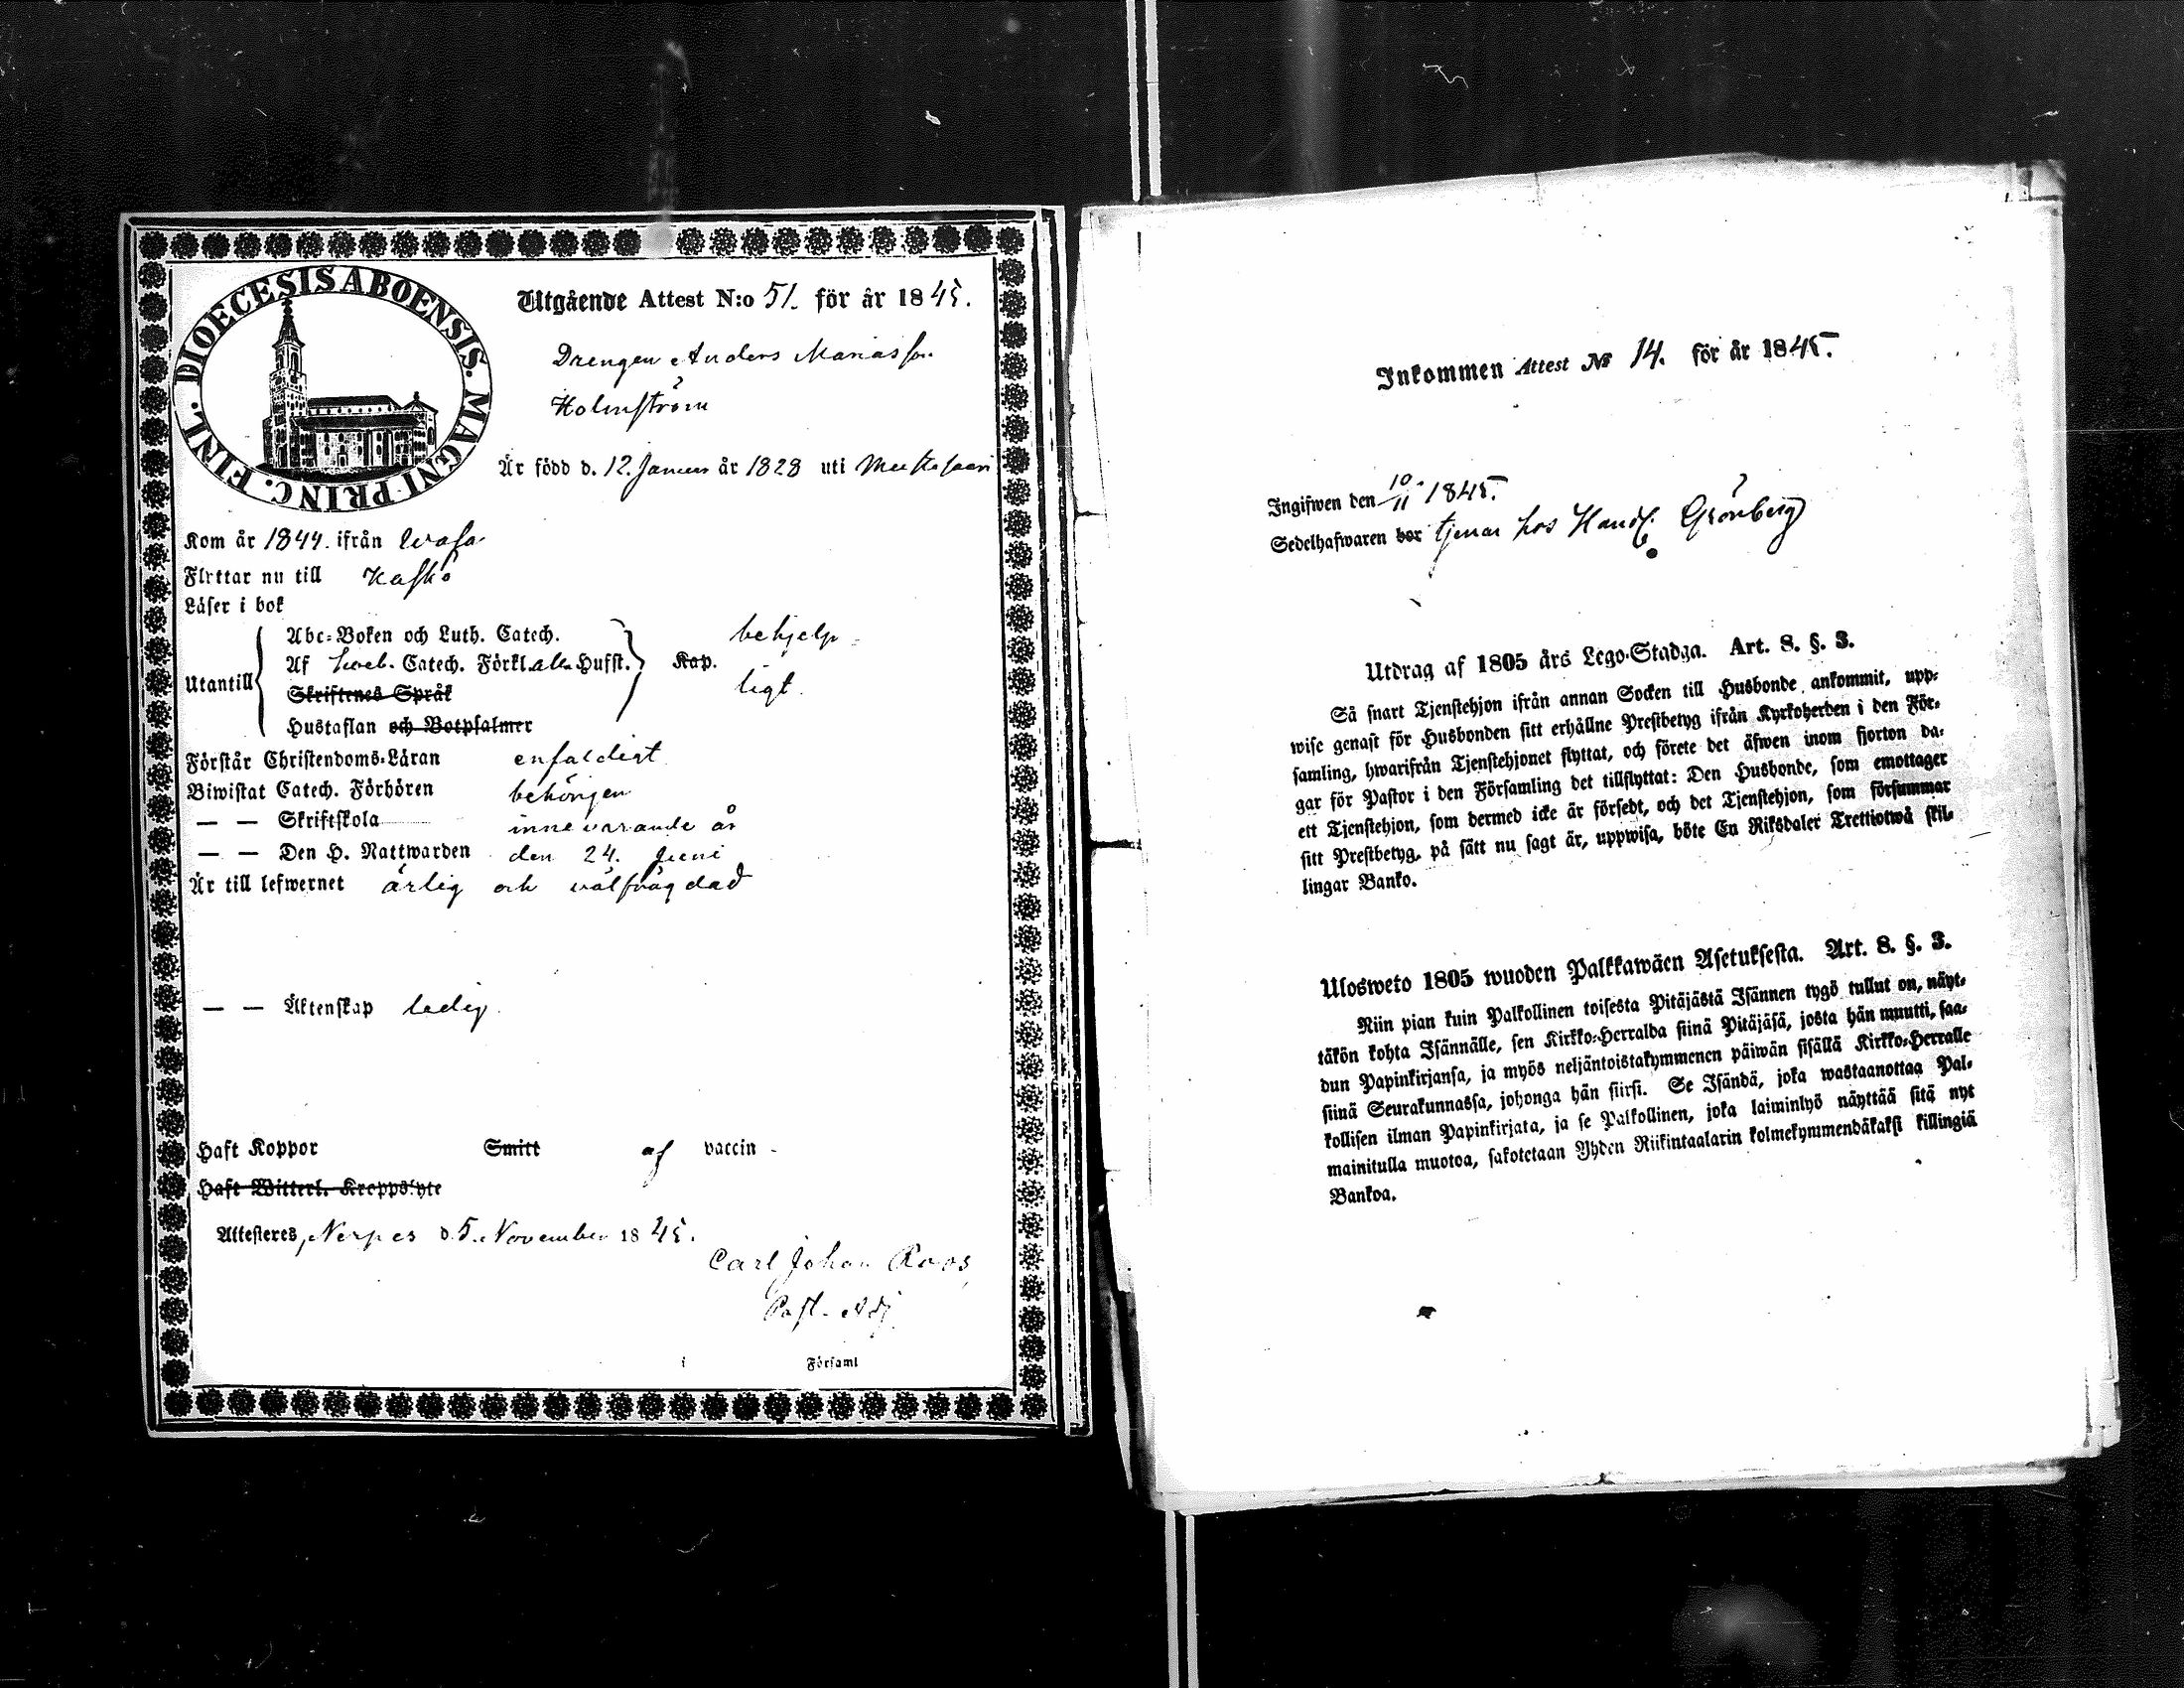 DIOECESIS ABOENSIS. MAGNI PRINC. FINL.
Utgående Attest N:o 51. för år 1845.
Drengen Anders Mariasson
Holmström
Är född d. 12. Januari år 1828 uti
Kom år 1844. ifrån Wasa
Flyttar nu till Kaskö
Läser i bok
Abc-Boken och Luth. Catech.
behjelp-
Af Sveb. Catech. Förkl. alla Husst.
Kap.
Utantill
ligt.
Skriftenes Språk
Hustaflan och Botpsalmer
Förstår Christendoms-Läran enfaldigt
Biwistat Catech. Förhören behörigen
— — Skriftskola innevarande år
— — Den H. Nattwarden den 24. Juni
Är till lefwernet ärlig och välfrägdad
— — Äktenskap ledig.
Haft Koppor Smitt af vaccin -
Haft Witterl. Kroppslyte
Attesteres, Nerpes d. 5. November 1845.
Carl Johan Roos
Past. Adj.
i Församl
Inkommen Attest No 14. för år 1845.
Ingifwen den 10/11 1845.
Sedelhafwaren bor tjenar hos Handl. Grönberg
Utdrag af 1805 års Lego-Stadga. Art. 8. §. 3.
Så snart Tjenstehjon ifrån annan Socken till Husbonde ankommit, upp-
wise genast för Husbonden sitt erhållne Prestbetyg ifrån Kyrkoherden i den För-
samling, hwarifrån Tjenstehjonet flyttat, och förete det äfwen inom fjorton da-
gar för Pastor i den Församling det tillflyttat: Den Husbonde, som emottager
ett Tjenstehjon, som dermed icke är försedt, och det Tjenstehjon, som försummar
sitt Prestbetyg, på sätt nu sagt är, uppwisa, böte En Riksdaler Trettiotwå skil-
lingar Banko.
Ulosweto 1805 wuoden Palkkawäen Asetuksesta. Art. 8. §. 3.
Niin pian kuin Palkollinen toisesta Pitäjästä Isännen tygö tullut on, näyt-
täkön kohta Isännälle, sen Kirkko-Herralda siinä Pitäjäsä, josta hän muutti, saa-
dun Papinkirjansa, ja myös neljäntoistakymmenen päiwän sisällä Kirkko-Herralle
siinä Seurakunnassa, johonga hän siirsi. Se Isändä, joka wastaanottaa Pal-
kollisen ilman Papinkirjata, ja se Palkollinen, joka laiminlyö näyttää sitä nyt
mainitulla muotoa, sakotetaan Yhden Riikintaalarin kolmekymmendäkaksi killingiä
Bankoa.